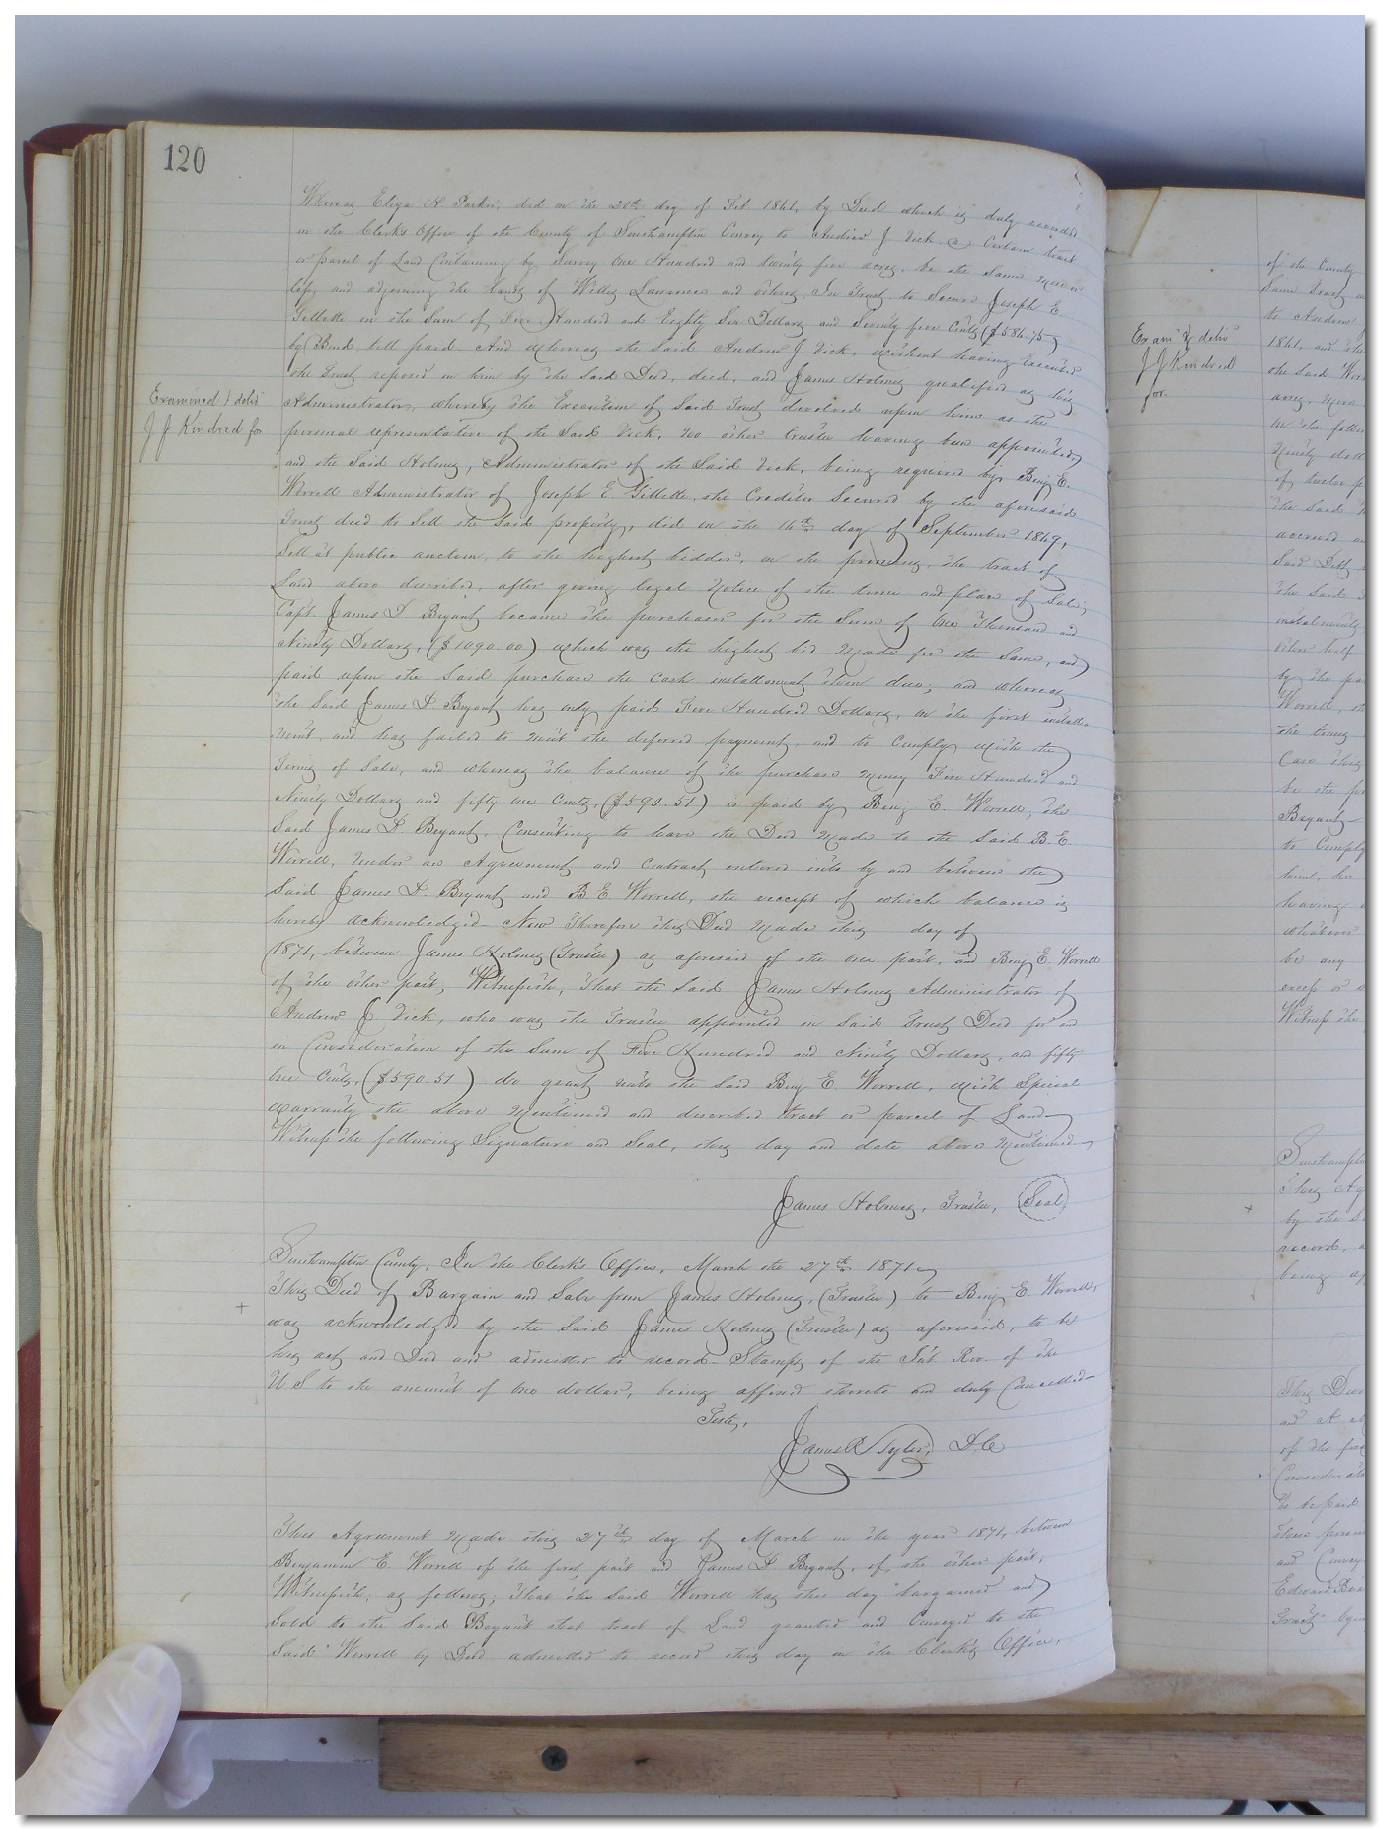 120
Whereas Eliza N Parker, did on the 20th day of Feb 1861, by Deed which is duly recorded
in the Clerks Office of the County of Southampton Convey to Andrew J Vick a Certain tract
or parcel of Land Containing by Survey One Hundred and twenty five acres, be the same more or
less, and adjoining the lands of Willis Lawrence and others In Trust to Secure Joseph E
Gillette in the Sum of Five Hundred and Eighty Six Dollars and Seventy five Cents ($586.75)
by Bond till paid And whereas the said Andrew J Vick, without having Executed
the trust reposed in him by the Said Deed, died, and James Holmes qualified as his
Administrator, whereby the Execution of Said Trust devolved upon him as the
personal representative of the Said Vick, no other trustee having been appointed,
and the Said Holmes, Administrator of the Said Vick, being required by Benj E.
Worrell Administrator of Joseph E Gillette, the Creditor Secured by the aforesaid
Trust deed to Sell the Said property, did on the 16th day of September 1869,
Sell at public auction, to the highest bidder, on the premises, the tract of
Land above described, after giving legal Notice of the time and place of Sale;
Capt James D Bryant became the purchaser for the Sum of One Thousand and
Ninety Dollars, ($1090.00) which was the highest bid made for the Same, and
paid upon the Said purchase the cash installment then due; and whereas
the Said James D. Bryant has only paid Five Hundred Dollars, on the first install-
ment, and has failed to meet the deferred payment, and to Comply with the
Terms of Sale, and whereas the balance of the purchase money Five Hundred and
Ninety Dollars and fifty one Cents, ($590.51) is paid by Benj E. Worrell, the
Said James D Bryant, Consenting to have the Deed made to the Said B.E.
Worrell, under an Agreement and Contract entered into by and between the
Said James D. Bryant and B E Worrell, the receipt of which balance is
hereby acknowledged- Now Therefore this Deed made this day of
1871, between James Holmes (Trustee) as aforesaid of the one part, and Benj E Worrell
of the other part, Witnesseth, That the Said James Holmes Administrator of
Andrew J Vick, who was the Trustee appointed in Said Trust Deed for and
in Consideration of the Sum of Five Hundred and Ninety Dollars, and fifty
One Cents, ($590.51) do grant unto the Said Benj E. Worrell, with Special
warranty the above mentioned and described tract or parcel of Land-
Witness the following Signature and Seal, this day and date above mentioned-
James Holmes, Trustee, Seal
Southampton County, In the Clerk's Office, March the 27th 1871
This Deed of Bargain and Sale from James Holmes, (Trustee) to Benj E. Worrell,
was acknowledged by the Said James Holmes (Trustee) as aforesaid, to be
his act and Deed and admitted to record- Stamps of the Int Rev. of the
U S to the amount of One dollar, being affixed thereto and duly Cancelled-
Teste,
James R Tyler, D.C
This Agreement made this 27th day of March in the year 1871, between
Benjamin E. Worrell of the first part and James D. Bryant, of the other part,
Witnesseth, as follows; That the Said Worrell has this day bargained and
Sold to the Said Bryant that tract of Land granted and Conveyed to the
Said Worrell by Deed admitted to record this day in the Clerk's Office,
Examined & deliv
J J Kindred for
Exam & deliv
J J Kindred
for
of the County
Same tract
to Andrew
1861, and
the Said Wor
acres, more
in the follow
Ninety doll
of twelve
the Said
accrued
Said Debt
the Said
instalments
other half
by the pa
Worrell,
the times
Case this
be the
Bryant-
to Comply
him, his
having
whatever
be any
except or
Witness the
Southampto
This Ag
by the S
record,
being
This Deed
and
of the
Consideratio
to be paid
these presen
and Convey
Edward
Tract